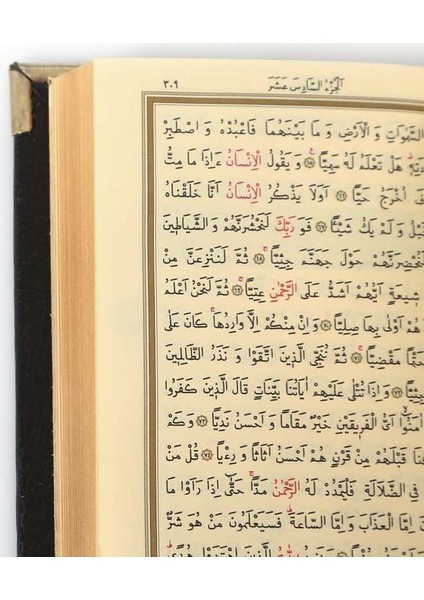 اَلْجُزْءُ السَّادِسَ عَشَرَ ٣٠٩
السَّمٰوَاتِ وَ الْاَرْضِ وَ مَا بَيْنَهُمَا فَاعْبُدْهُ وَ اصْطَبِرْ
هَلْ تَعْلَمُ لَهُ سَمِيًّا ﴿٦٥﴾ وَ يَقُولُ الْاِنْسَانُ ءَاِذَا مَا مِتُّ
اُخْرَجُ حَيًّا ﴿٦٦﴾ اَوَلَا يَذْكُرُ الْاِنْسَانُ اَنَّا خَلَقْنَاهُ
وَ لَمْ يَكُ شَيْئًا ﴿٦٧﴾ فَوَ رَبِّكَ لَنَحْشُرَنَّهُمْ وَ الشَّيَاطٖينَ
لَنُحْضِرَنَّهُمْ حَوْلَ جَهَنَّمَ جِثِيًّا ﴿٦٨﴾ ثُمَّ لَنَنْزِعَنَّ مِنْ
شٖيعَةٍ اَيُّهُمْ اَشَدُّ عَلَى الرَّحْمٰنِ عِتِيًّا ﴿٦٩﴾ ثُمَّ لَنَحْنُ اَعْلَمُ
هُمْ اَوْلٰى بِهَا صِلِيًّا ﴿٧٠﴾ وَ اِنْ مِنْكُمْ اِلَّا وَارِدُهَا كَانَ عَلٰى
حَتْمًا مَقْضِيًّا ﴿٧١﴾ ثُمَّ نُنَجِّى الَّذٖينَ اتَّقَوْا وَ نَذَرُ الظَّالِمٖينَ
جِثِيًّا ﴿٧٢﴾ وَ اِذَا تُتْلٰى عَلَيْهِمْ اٰيَاتُنَا بَيِّنَاتٍ قَالَ الَّذٖينَ كَفَرُوا
اٰمَنُوا اَىُّ الْفَرٖيقَيْنِ خَيْرٌ مَقَامًا وَ اَحْسَنُ نَدِيًّا ﴿٧٣﴾ وَ كَمْ
قَبْلَهُمْ مِنْ قَرْنٍ هُمْ اَحْسَنُ اَثَاثًا وَ رِءْيًا ﴿٧٤﴾ قُلْ مَنْ
فِى الضَّلَالَةِ فَلْيَمْدُدْ لَهُ الرَّحْمٰنُ مَدًّا حَتّٰى اِذَا رَاَوْا مَا
اِمَّا الْعَذَابَ وَ اِمَّا السَّاعَةَ فَسَيَعْلَمُونَ مَنْ هُوَ شَرٌّ